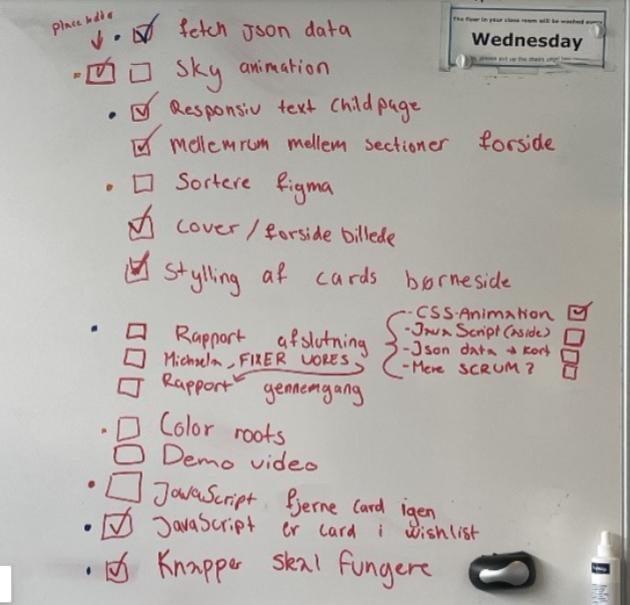 Placeholder
fetch json data
Sky animation
Responsiv text Childpage
Mellemrum mellem sectioner forside
Sortere figma
Cover / forside billede
Stylling af cards børneside
Rapport afslutning
Michaela, FIXER VORES
Rapport gennemgang
- CSS-Animation
- Java Script (aside)
- Json data → kort
- Mere SCRUM?
Color roots
Demo video
JavaScript fjerne card igen
JavaScript er card i wishlist
Knapper skal fungere
The floor in your class room will be washed every
Wednesday
please put up the chairs